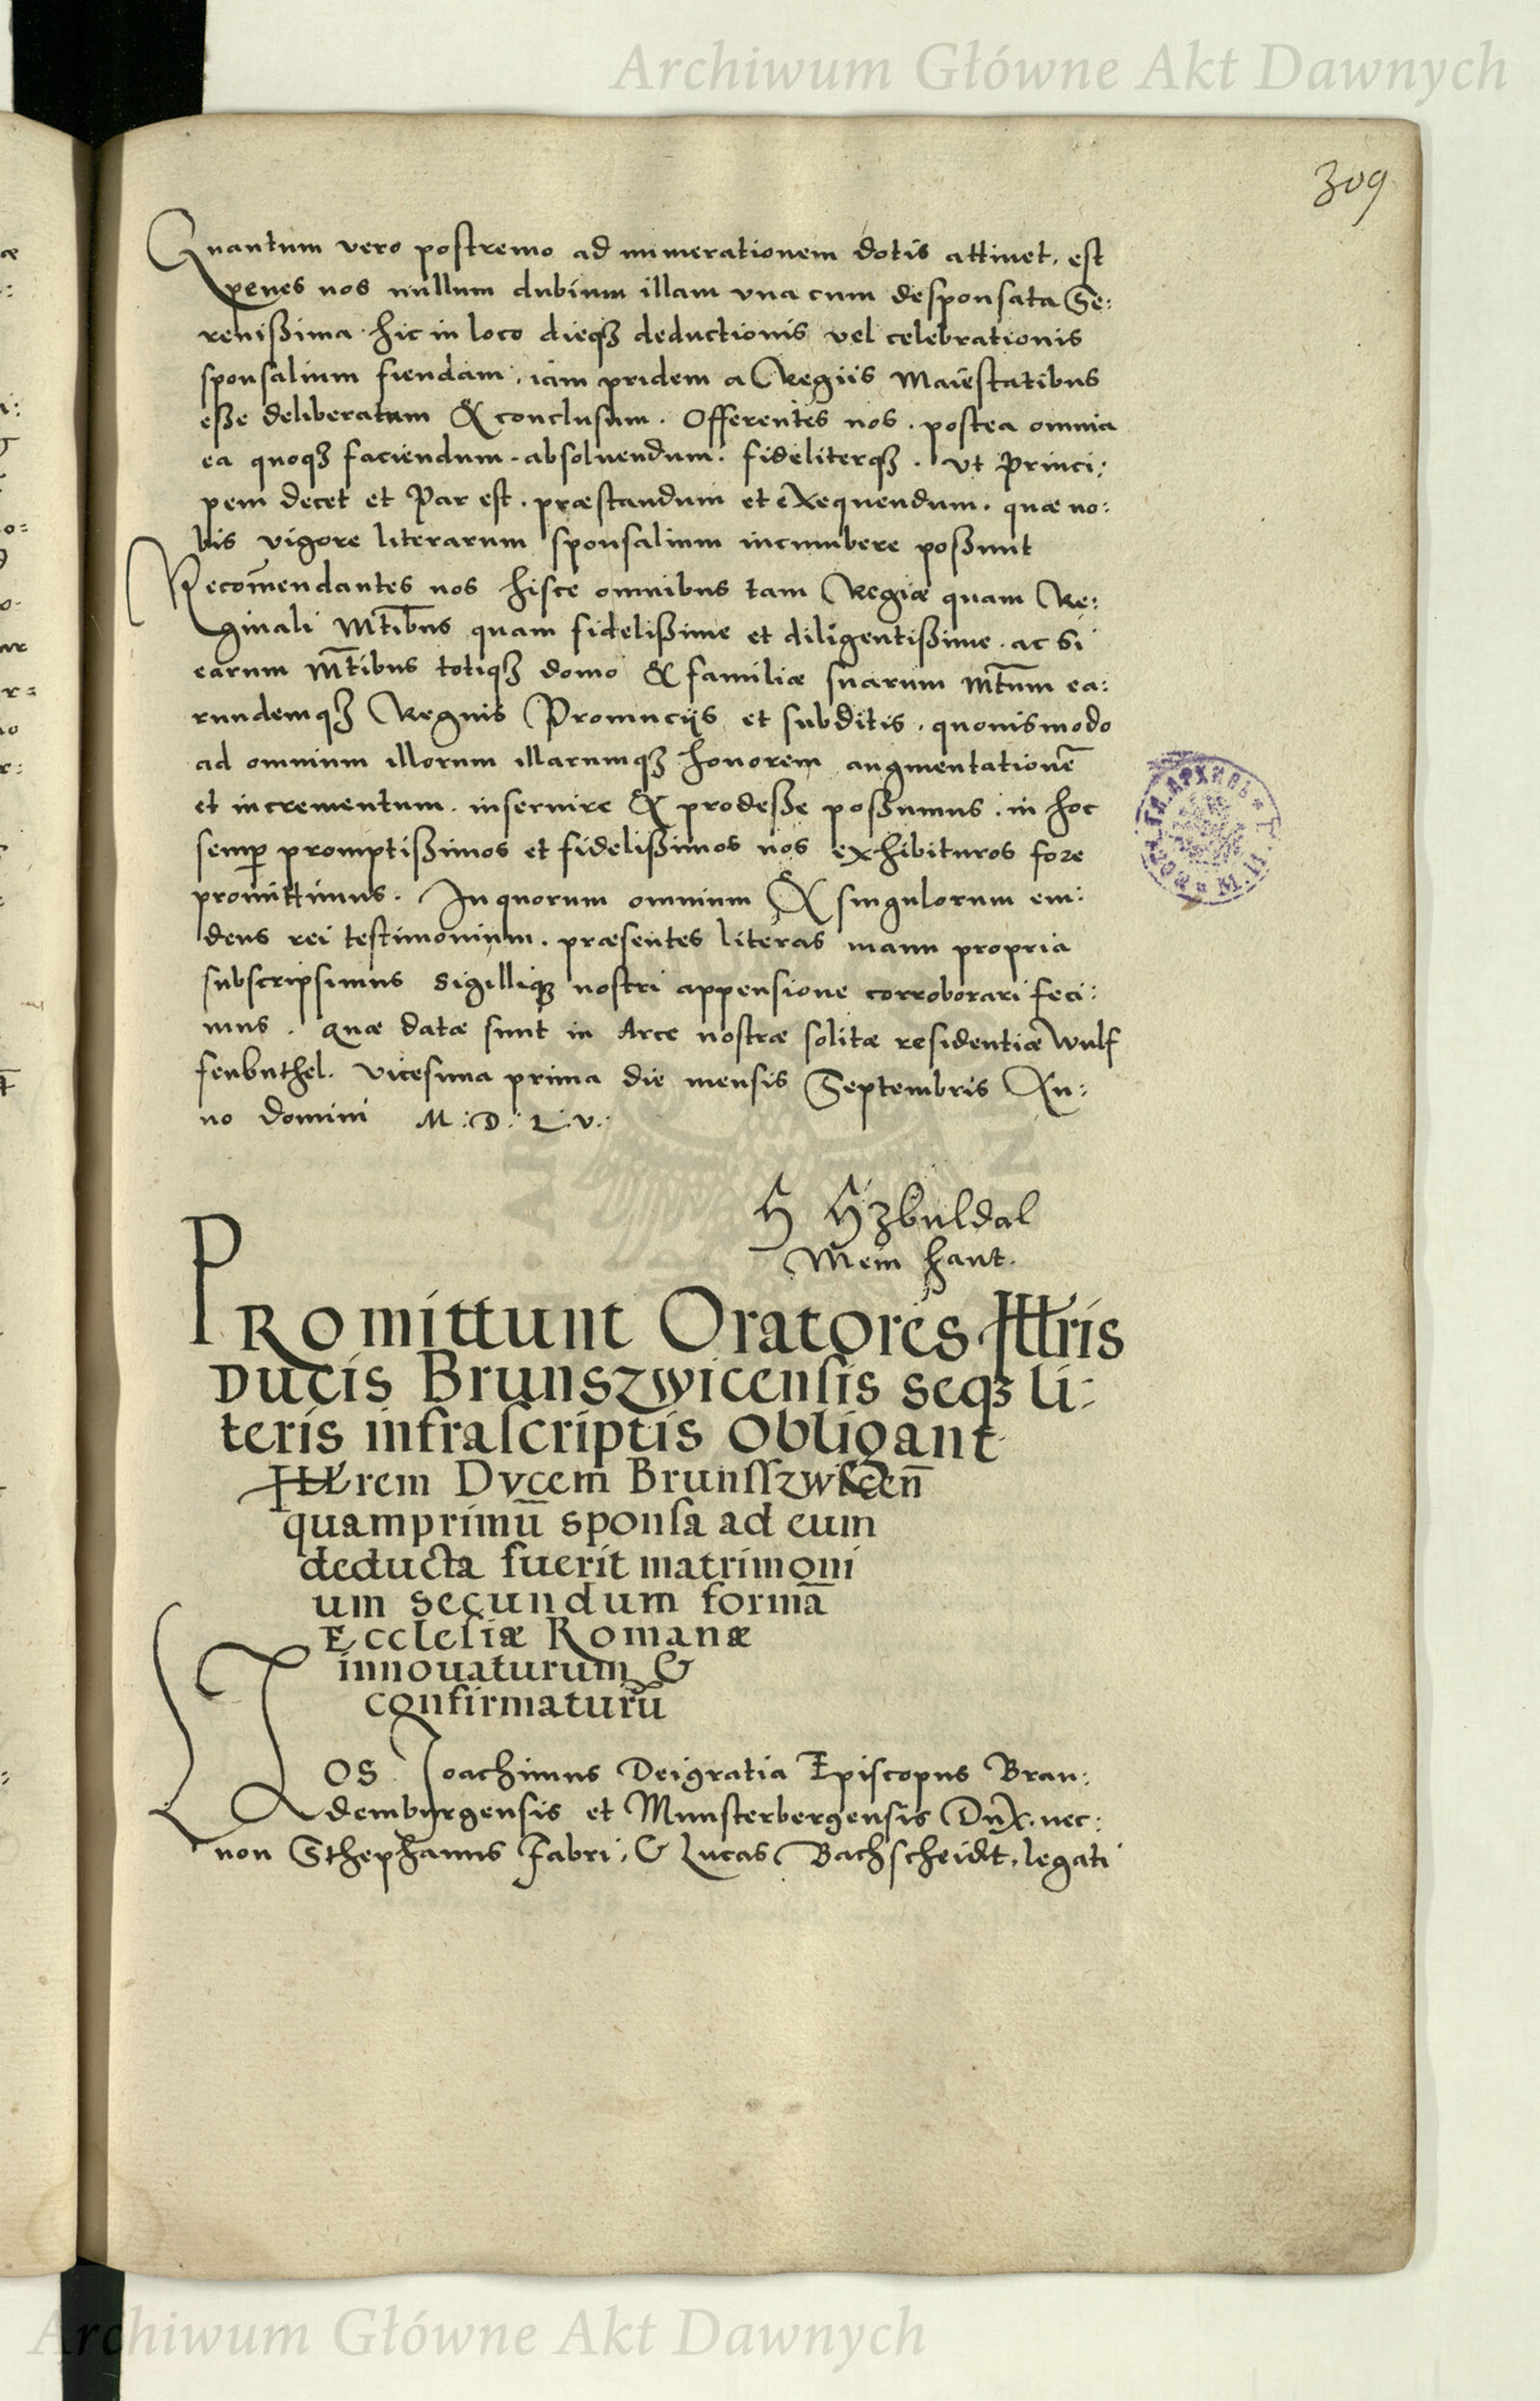 Archiwum Główne Akt Dawnych
309
Quantum vero postremo ad numerationem dotis attinet, est
penes nos nullum dubium illam vna cum desponsata Se:
renißima hic in loco dieqȝ deductionis vel celebrationis
sponsalium fiendam, iam pridem a Regiis Maiestatibus
eße deliberatum & conclusum. Offerentes nos, postea omnia
ea quoqȝ faciendum, absoluendum, fideliterqȝ, vt Princi:
pem decet et Par est, præstandum et exequendum, quæ no:
bis vigore literarum sponsalium incumbere poßunt
Recom̄endantes nos hisce omnibus tam Regiæ quam Re:
ginali Mt̄ibus quam fidelißime et diligentißime, ac si
earum Mt̄ibus totiqȝ domo & familiæ suarum Mt̄um ea:
rundemqȝ Regnis Prouincijs et subditis, quouismodo
ad omnium illorum illarumqȝ honorem augmentationē
et incrementum, inseruire & prodeße poßumus, in hoc
semꝑ promptißimos et fidelißimos nos exhibituros fore
promittimus. In quorum omnium & singulorum eui:
dens rei testimonium, præsentes literas manu propria
subscripsimus sigilliqȝ nostri appensione corroborari feci:
mus. quæ datæ sunt in Arce nostræ solitæ residentiæ Wulf
fenbuthel. Vicesima prima die mensis Septembris An:
no domini M:D:L:V:
H Hzbuldal
Mein hant.
Promittunt Oratores Illris
Ducis Brunszwicensis seqȝ li:
teris infrascriptis obligant
Illrem Dvcem Brunsszwicen̄
quamprimū sponsa ad eum
deducta fuerit matrimoni
um secundum formā
Ecclesiæ Romanæ
innouaturum &
confirmaturū
NOS Ioachimus Dei gratia Episcopus Bran:
demburgensis et Munsterbergensis Dux, nec:
non Sthephanus Fabri, & Lucas Bachscheidt, legati
Archiwum Główne Akt Dawnych